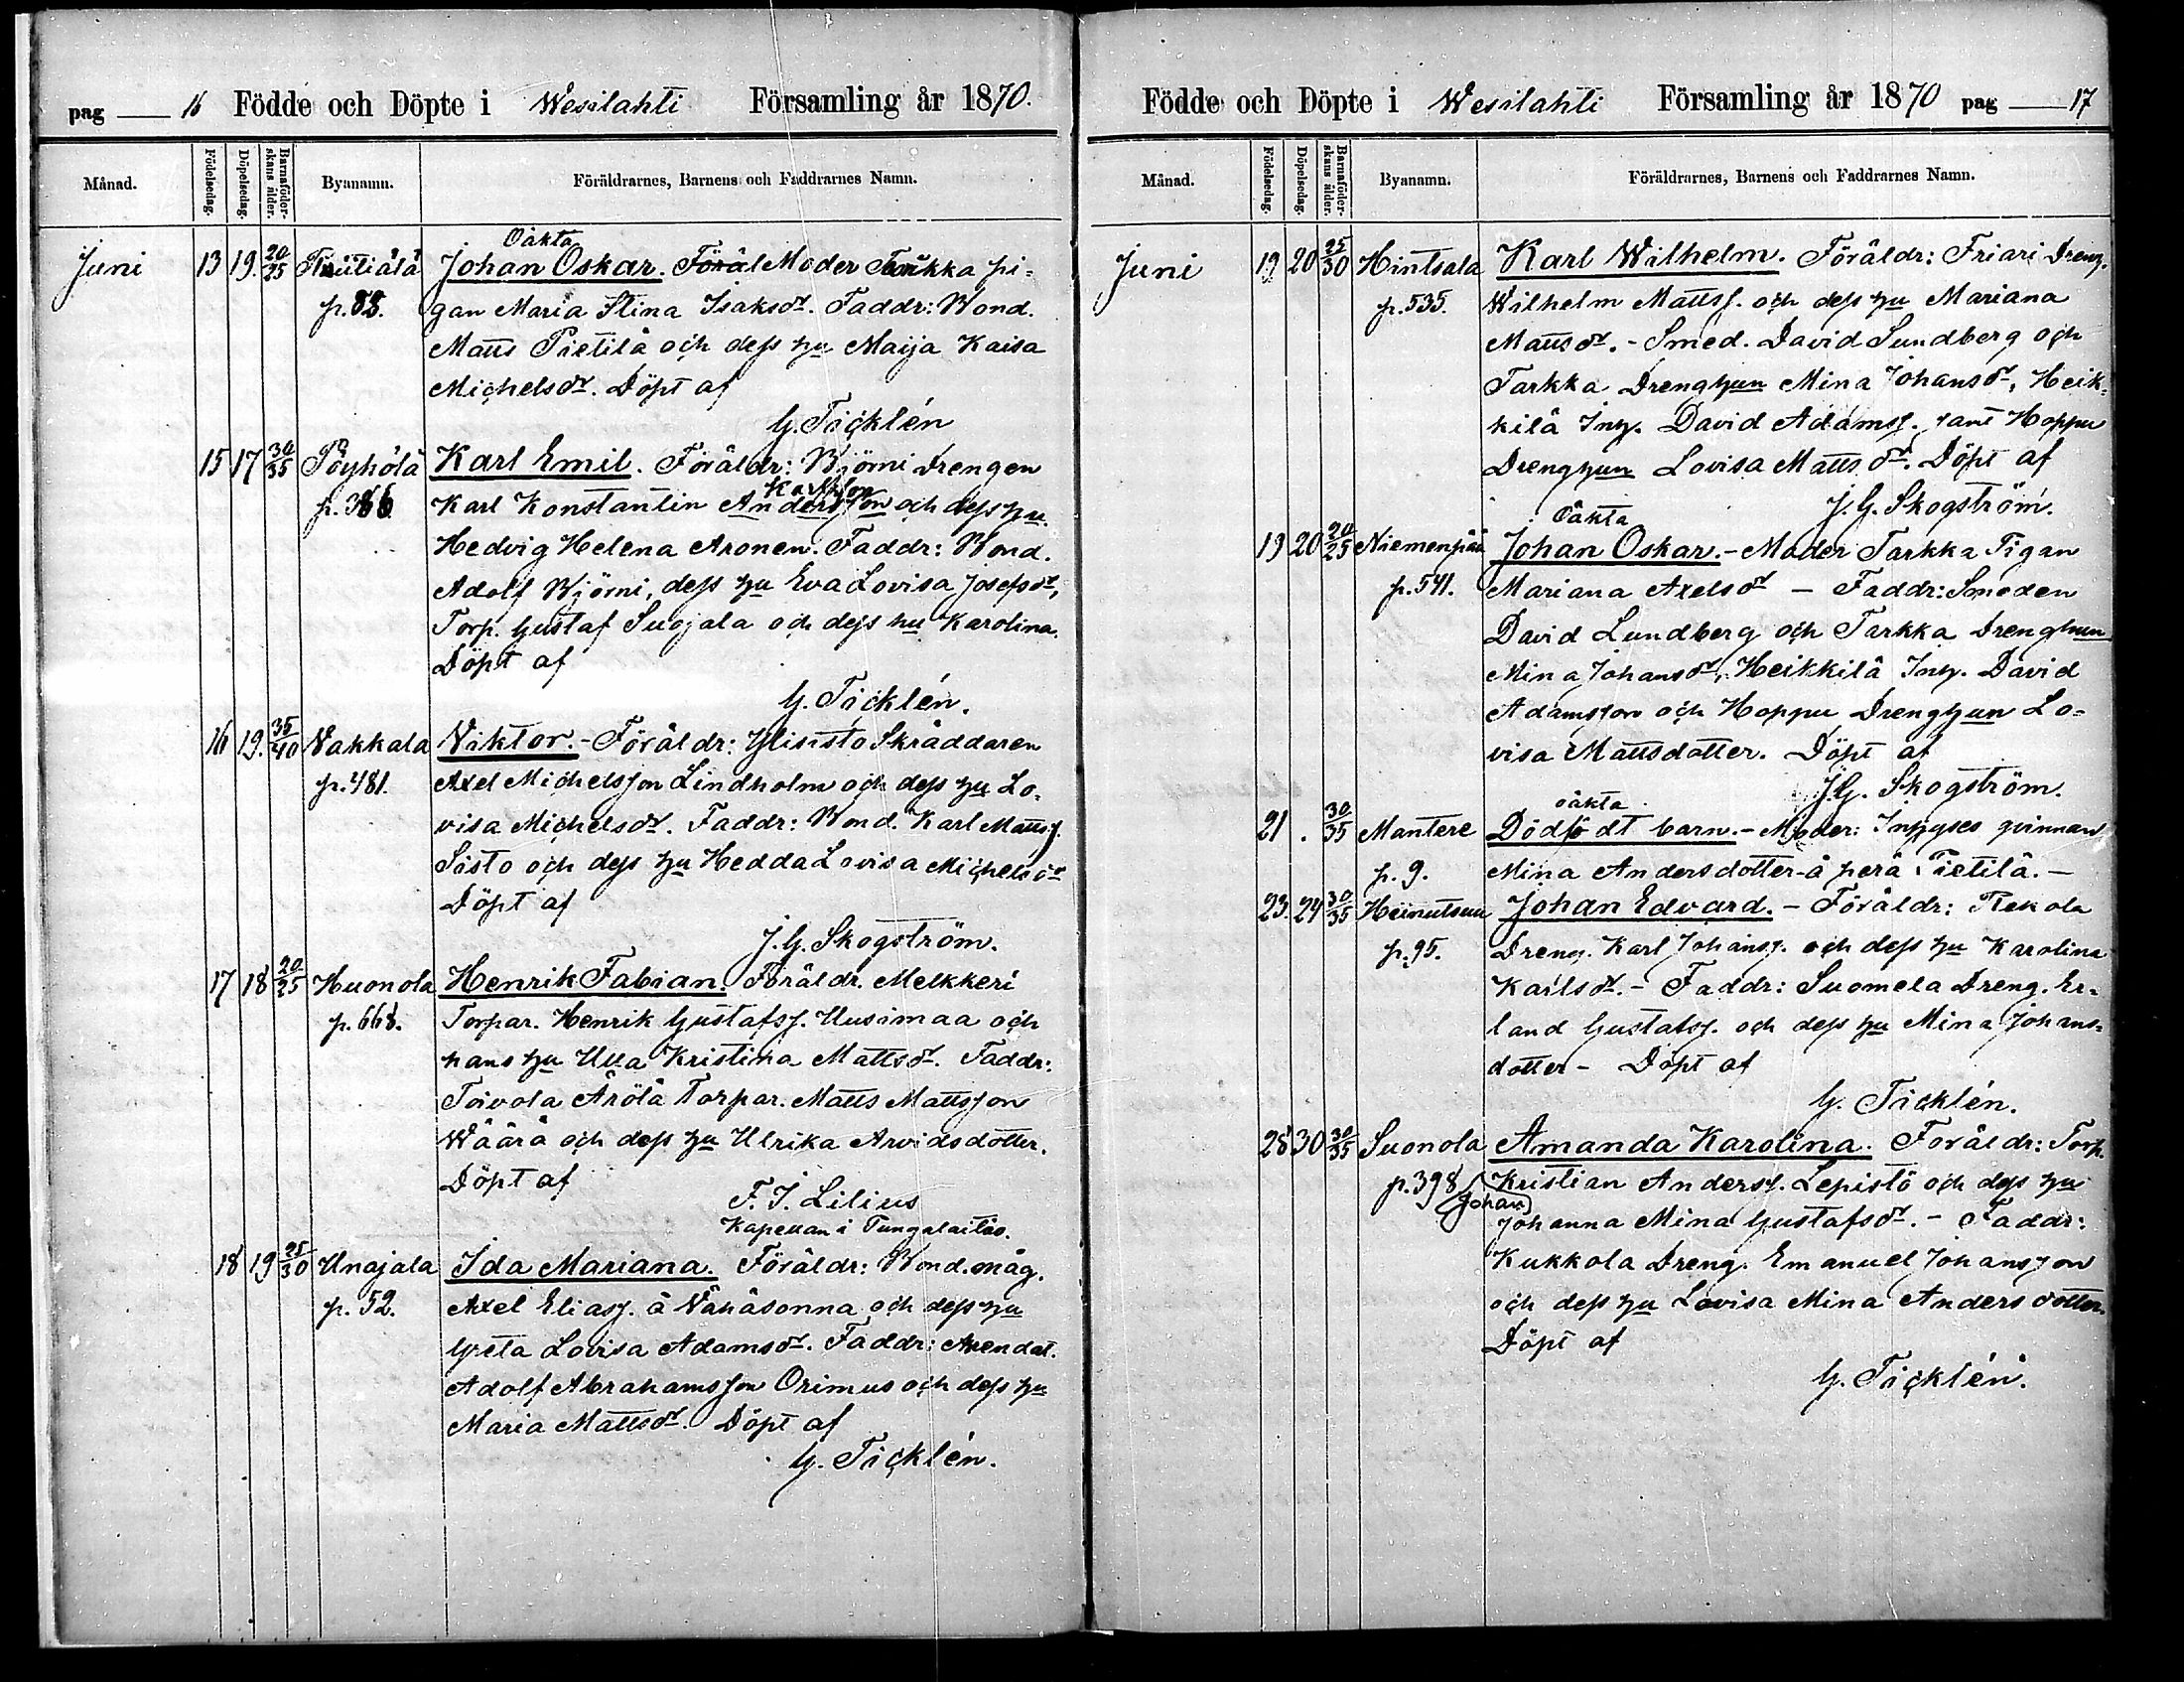 pag 16 Födde och Döpte i Wesilahti Församling år 1870.
Månad. Födelsedag. Döpelsedag. Barnaföderskans ålder. Byanamn. Föräldrarnes, Barnens och Faddrarnes Namn.
Oäkta
Juni 13 19. 20/25 Johan Oskar. Moder pi-
p. 88. gan Maria Stina Isaksdr. Faddr: Bond.
Matts Pietilä och dess hu Maija Kaisa
Michelsdr. Döpt af
G. Ticklén
15 17 30/35 Pöyhölä Karl Emil. Föräldr: Björni Drengen
Karlsson
p. 366 Karl Konstantin Andersson och dess hu
Hedvig Helena Aronen. Faddr: Bond.
Adolf Björni, dess hu Eva Lovisa Josefsdr,
Torp. Gustaf Suojala och dess hu Karolina.
Döpt af
G. Ticklén.
16 19. 35/40 Vakkala Viktor. - Föräldr: Ylisisto Skräddaren
p. 481. Axel Michelsson Lindholm och dess hu Lo-
visa Michelsdr. Faddr: Bond. Karl Mattss.
Sisto och dess hu Hedda Lovisa Michelsdr
Döpt af
J. G. Skogström.
17 18 20/25 Huonola Henrik Fabian. Föräldr. Melkkeri
p. 668. Torpar. Henrik Gustafss. Uusimaa och
hans hu Ulla Kristina Mattsdr. Faddr:
Toivola Ärölä Torpar. Matts Mattsson
Wäärä och dess hu Ulrika Arvidsdotter.
Döpt af
F. I. Lilius
Kapellan i Tungalaitio.
18 19 25/30 Unajala Ida Mariana. Föräldr: Bond. måg.
p. 52. Axel Eliass. å Vähäsonna och dess hu
Greta Lovisa Adamsdr. Faddr: Arendat.
Adolf Abrahamsson Orimus och dess hu
Maria Mattsdr. Döpt af
G. Ticklén.
Födde och Döpte i Wesilahti Församling år 1870 pag 17
Månad. Födelsedag. Döpelsedag. Barnaföderskans ålder. Byanamn. Föräldrarnes, Barnens och Faddrarnes Namn.
Juni 19 20 25/30 Hintsala Karl Wilhelm. Föräldr: Friari Dreng.
p. 535. Wilhelm Mattss. och dess hu Mariana
Mattsdr. - Smed. David Sundberg och
Tarkka Drenghun Mina Johansdr, Heik-
kilä Inh. David Adamss. samt Hoppu
Drenghun Lovisa Mattsdr. Döpt af
J. G. Skogström.
Oäkta
19 20 20/25 Niemenpää Johan Oskar. - Moder Tarkka Pigan
p. 541. Mariana Axelsdr - Faddr: Smeden
David Lundberg och Tarkka Drenghun
Mina Johansdr, Heikkilä Inh. David
Adamsson och Hoppu Drenghun Lo-
visa Mattsdotter. Döpt af
J. G. Skogström.
oäkta
21 . 30/35 Mantere Dödfödt barn. - Moder: Inhyses qvinnan
p. 9. Mina Andersdotter å perä Pietilä. -
23. 24 30/35 Heinutsuu Johan Edvard. - Föräldr: Rekola
p. 95. Dreng. Karl Johanss. och dess hu Karolina
Karlsdr. - Faddr: Suomela Dreng. Er-
land Gustafss. och dess hu Mina Johans-
dotter - Döpt af
G. Ticklén.
28 30 30/35 Suonola Amanda Karolina. Föräldr: Torp.
p. 398 Kristian Anderss. Lepistö och dess hu
(Johan)
Johanna Mina Gustafsdr. - Faddr:
Kukkola Dreng. Emanuel Johansson
och dess hu Lovisa Mina Andersdotter.
Döpt af
G. Ticklén.